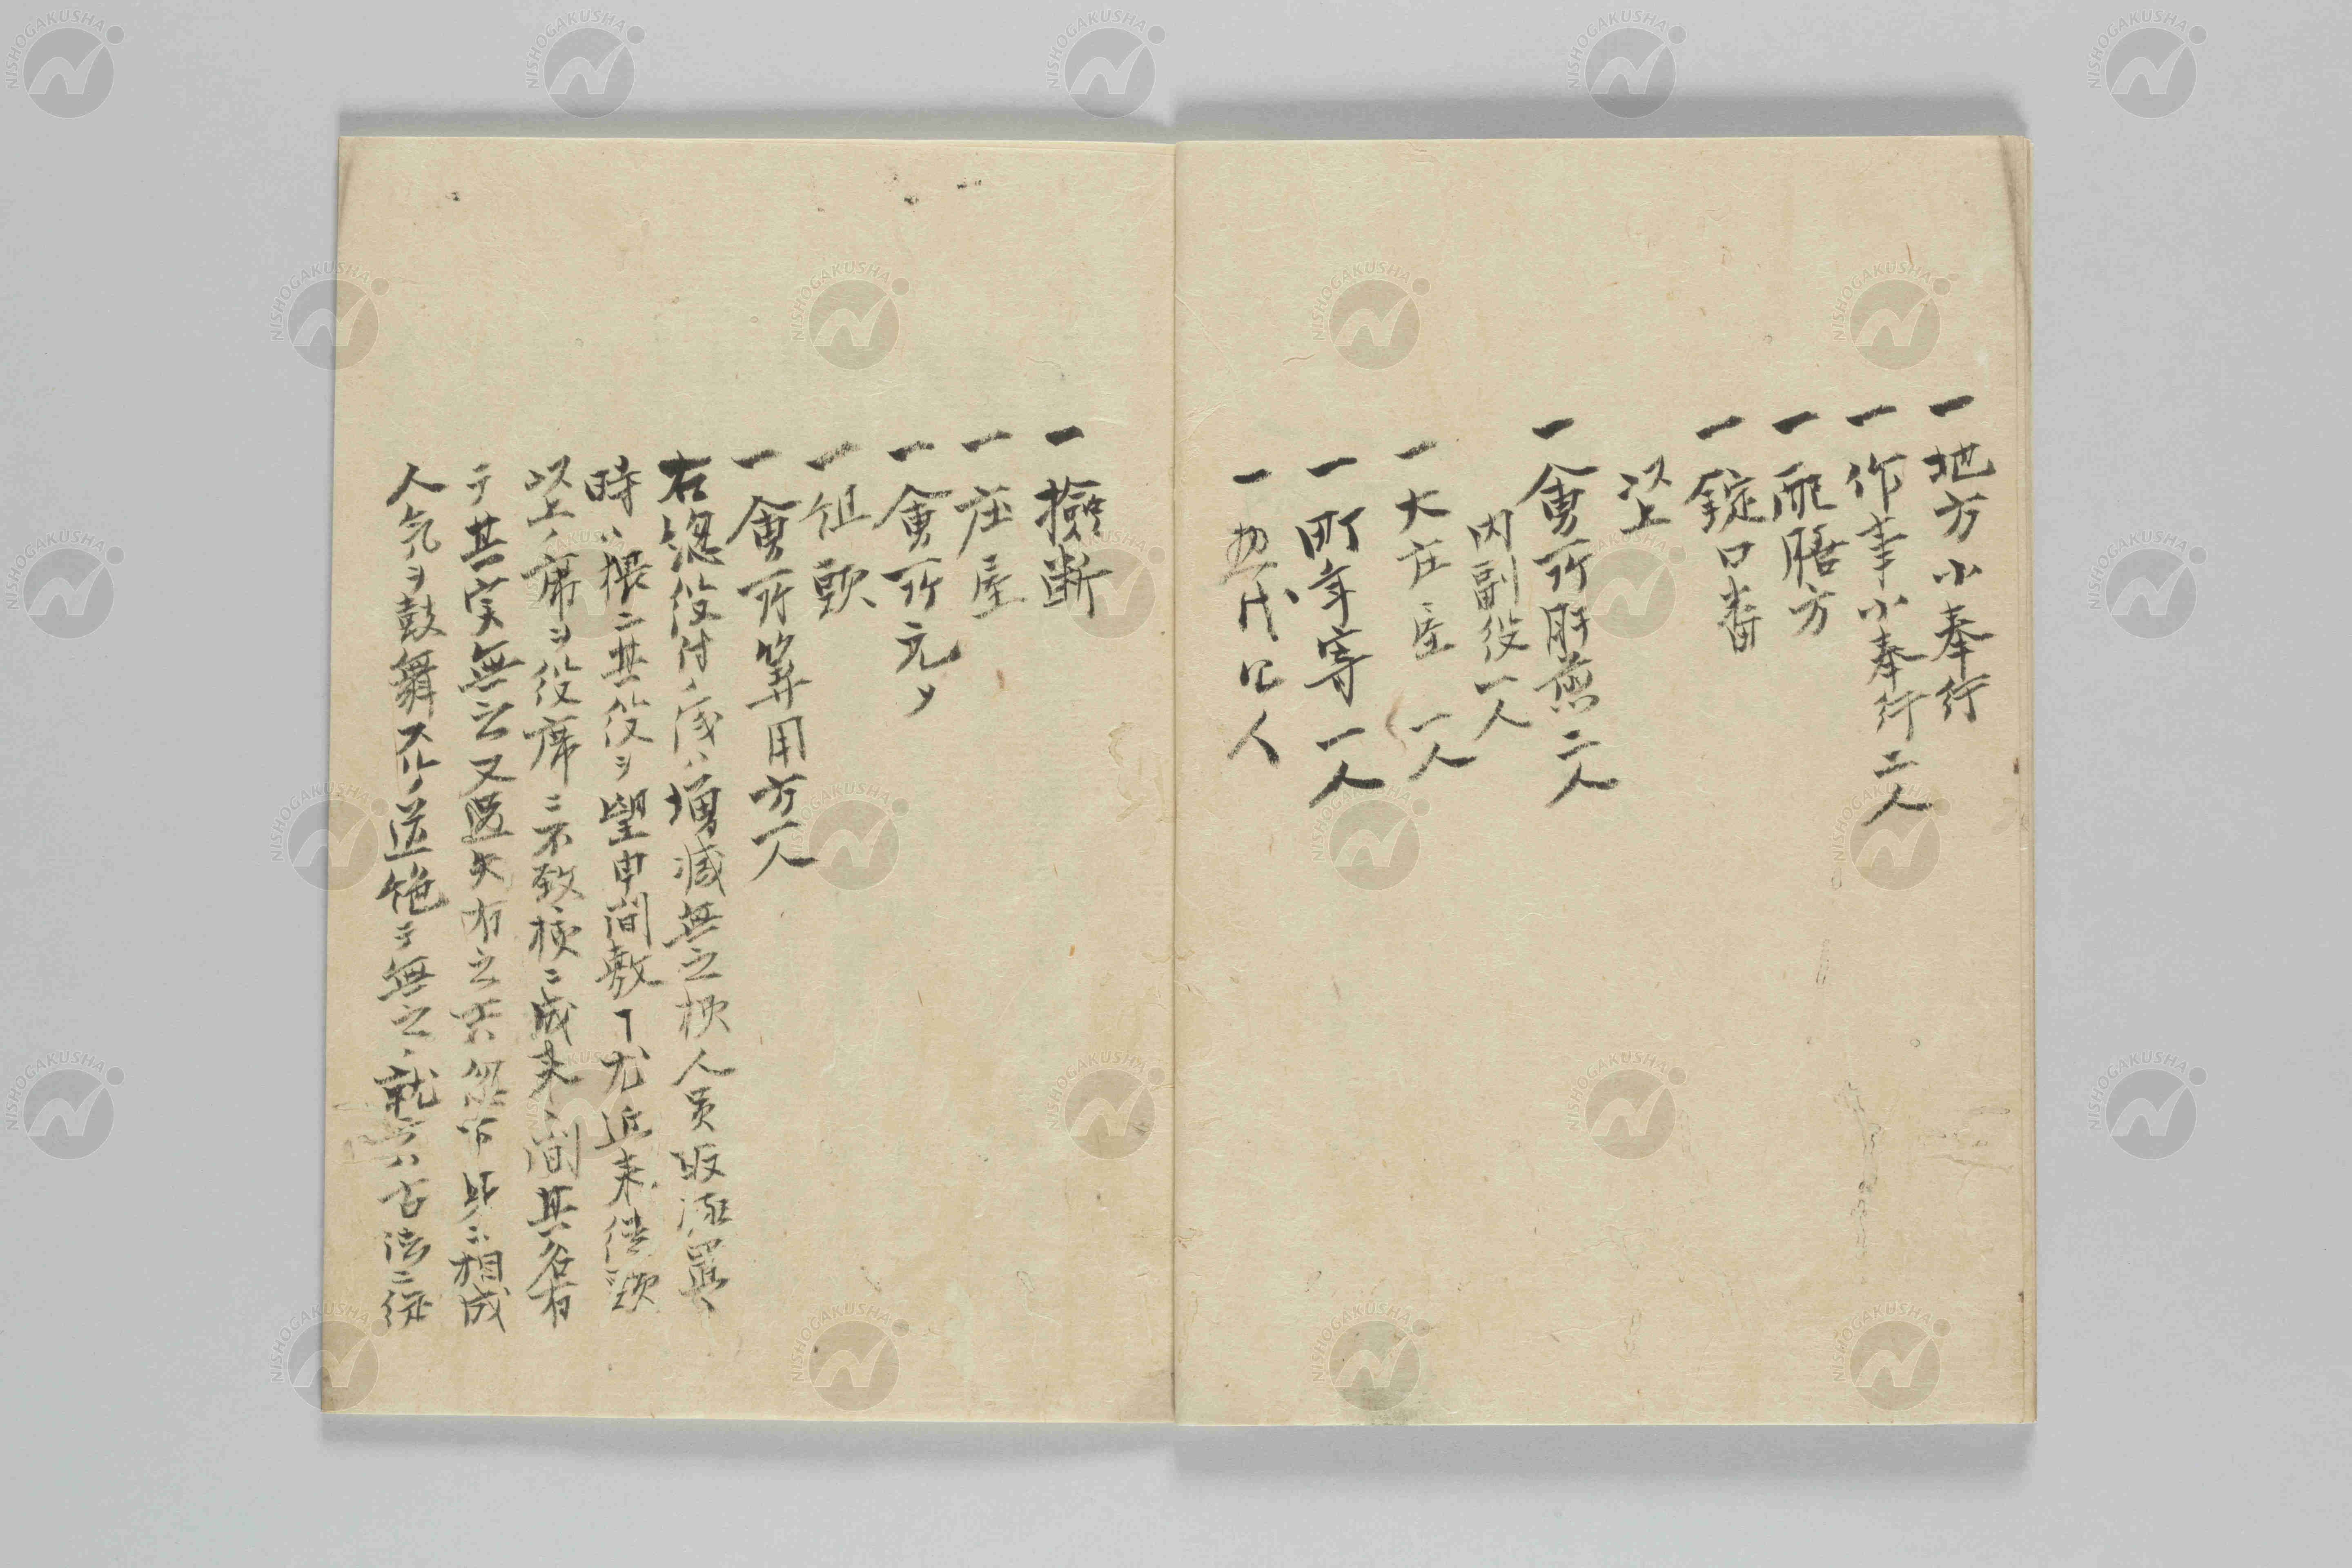 一地方小奉行
一作事小奉行二人
一配膳方
一錠口番
以上
一會所肝煎二人
内副役一人
一大庄屋一人
一町年寄一人
一惣代四人
一撿断
一庄屋
一會所元〆
一組頭
一會所筭用方一人
右惣役付ノ儀ハ増減無之様人員取極置
時ハ猥ニ其役ヲ望申間敷了尤近来
以上ノ席ヲ役席ニ不致様ニ成来ノ間其名有
テ其実無之又過失有之共 相成
人気ヲ鼓舞スルノ道絶テ無之ノ就テハ古法ニ従
NISHOGAKUSHA